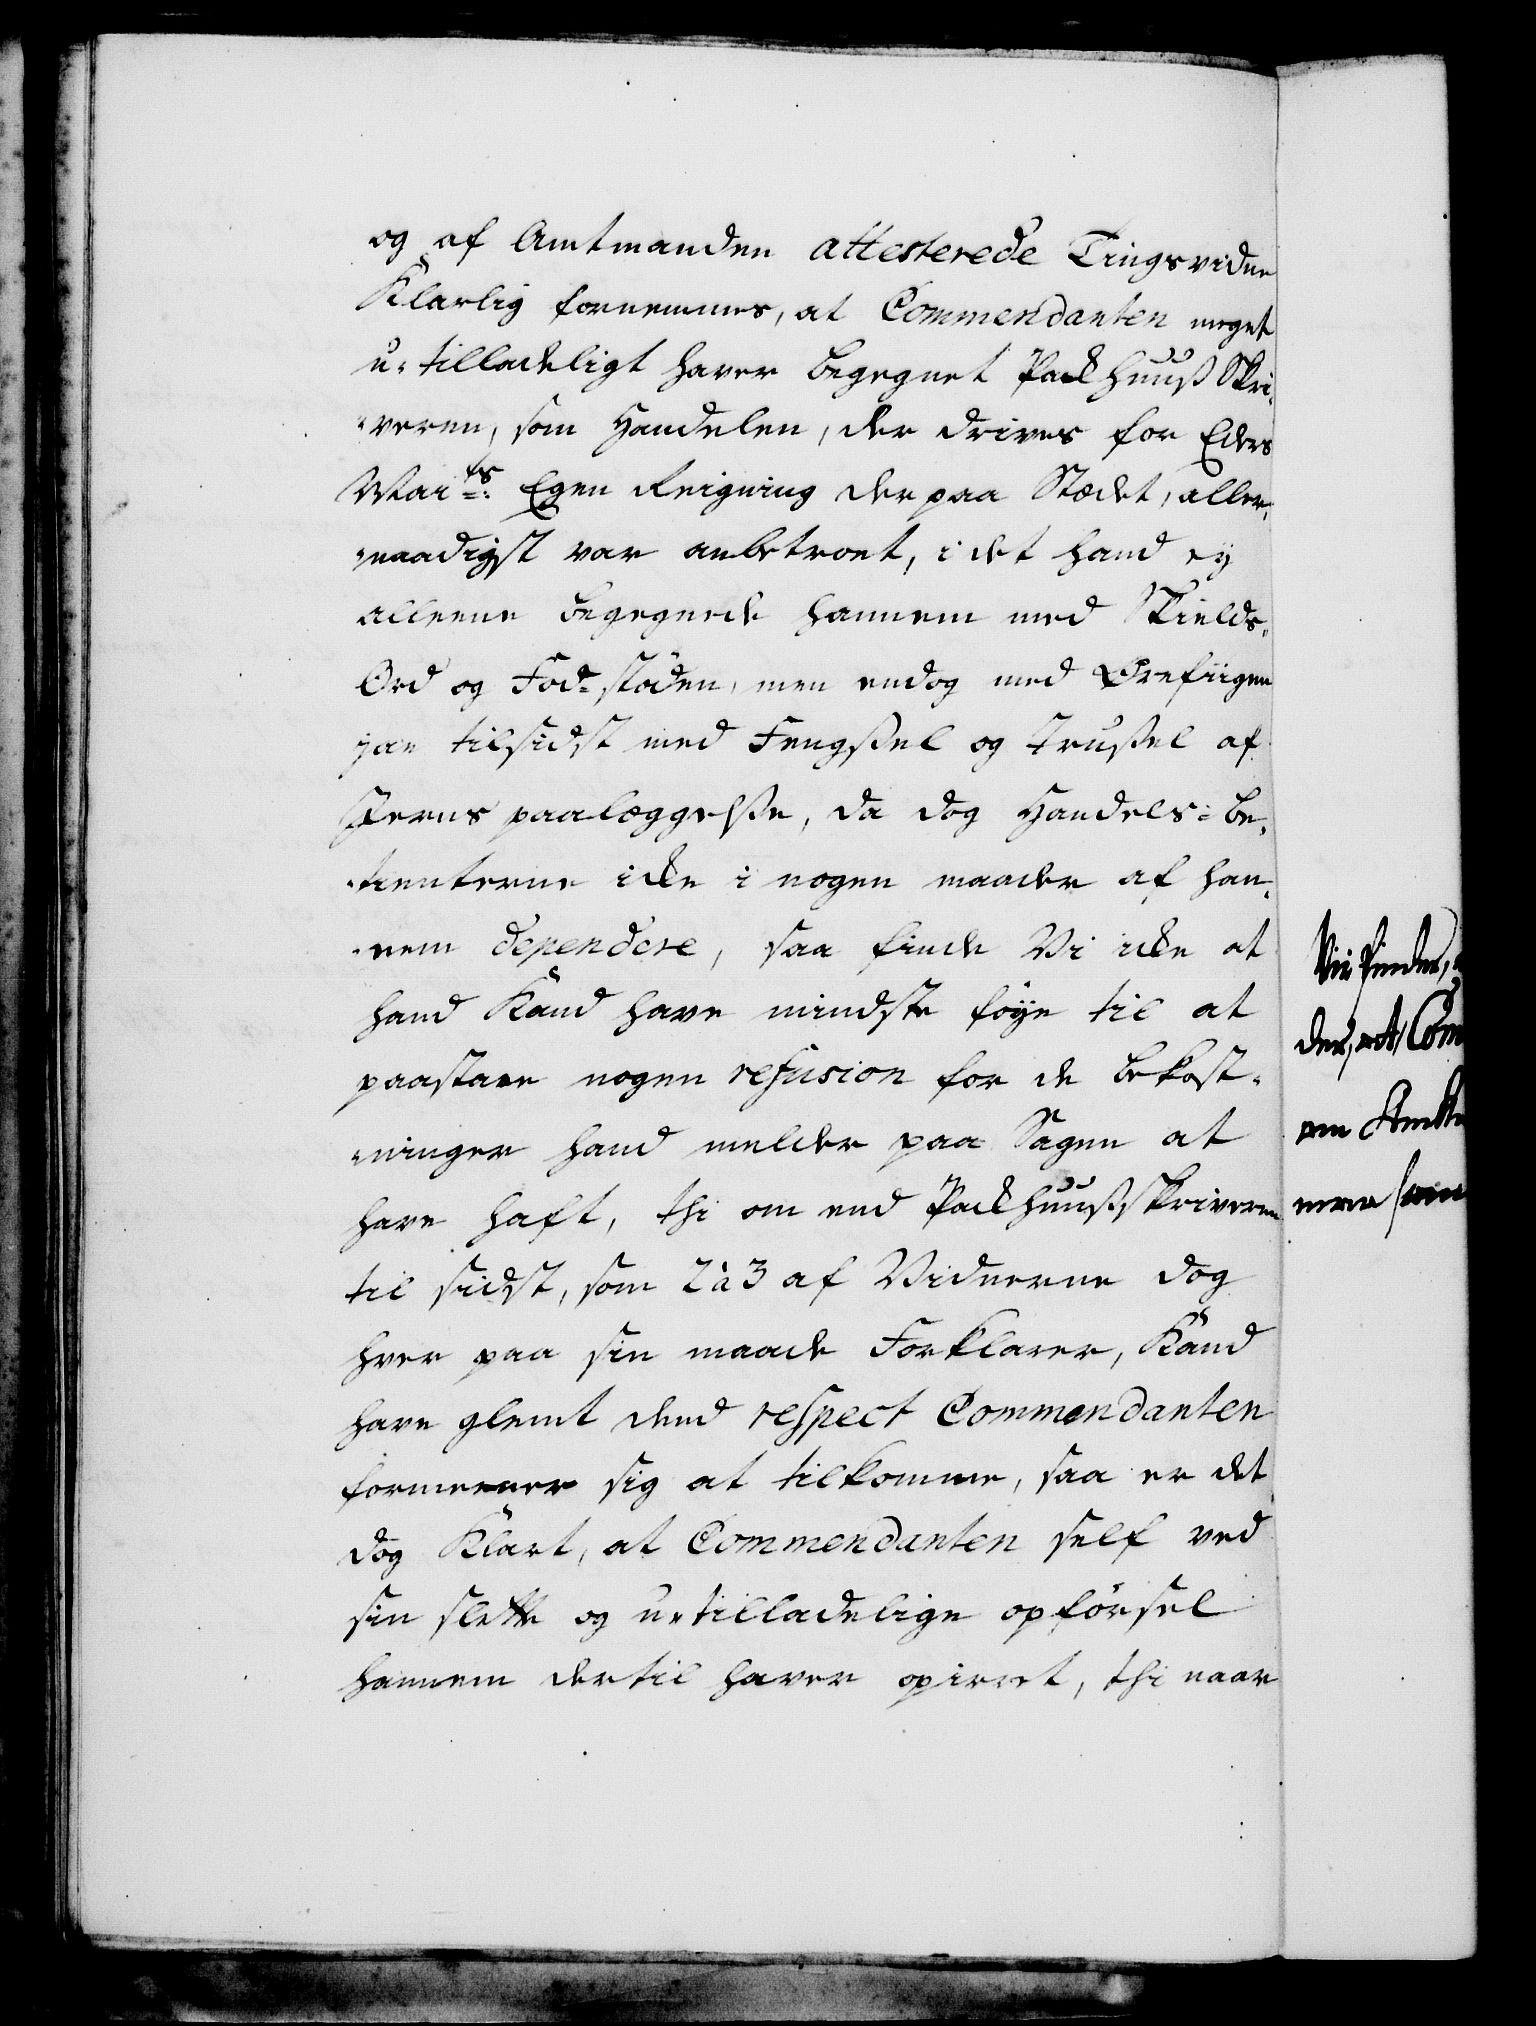 og af Amtmanden attesterede Tingsvidne
Klarlig fornemmes, at Commendanten meget
u-tilladeligt haver begegnet Packhuuß Skri-
-veren, som Handelen, der drives for Eders
Mai:ts Egen Reigning der paa Stædet, aller-
-naadigst var anbetroet, i det hand ey
alleene begegnede hannem med Skields-
Ord og Fod-støden, men endog med Ørefiigen
jae tilsidst med Fengßel og Trußel af
Jerns paalæggelße, da dog Handels-be-
-tienterne icke i nogen maader af han-
-nem dependere, saa finde Vi icke at
hand Kand have mindste föye til at
paastaae nogen refusion for de bekost-
-ninger hand melder paa Sagen at
have haft, thi om end Packhuußskriveren
til sidst, som 2 à 3 af Vidnerne dog
hver paa sin maade Forklarer, Kand
have glemt dend respect Commendanten
formeener sig at tilkomme, saa er det
dog Klart, at Commendanten self ved
sin slette og u-tilladelige opförsel
hannem dertil haver opirret, thi naar
Vii finder,
der, at Com